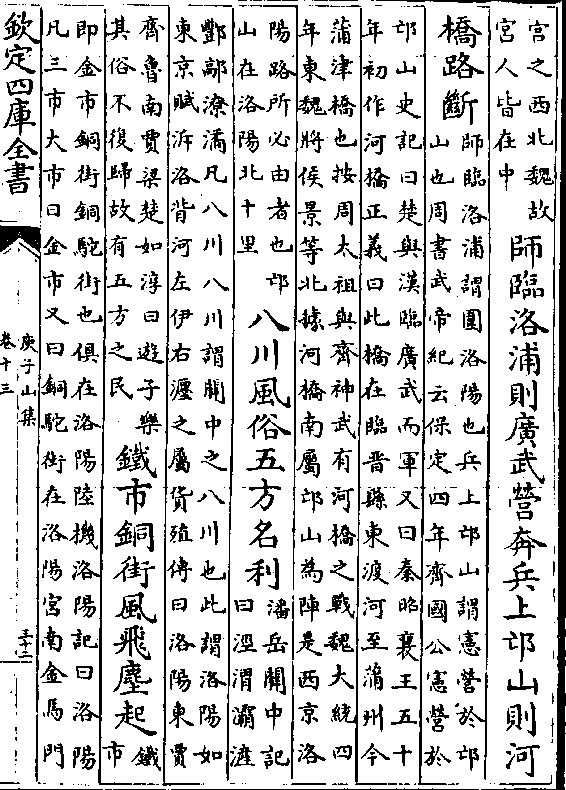 宫之西北魏故
宫人皆在中
師臨洛浦則廣武營奔兵上邙山則河
橋路斷
師臨洛浦謂圍洛陽也兵上邙山謂憲營於邙
山也周書武帝紀云保定四年齊國公憲營於
邙山史記曰楚與漢臨廣武而軍又曰秦昭襄王五十
年初作河橋正義曰此橋在臨晉縣東渡河至蒲州今
蒲津橋也按周太祖與齊神武有河橋之戰魏大統四
年東魏將侯景等北據河橋南屬邙山為陣是西京洛
陽路所必由者也邙
山在洛陽北十里
八川風俗五方名利
潘岳關中記
曰涇渭灞滻
酆鄗潦潏凡八川八川謂關中之八川也此謂洛陽如
東京賦泝洛背河左伊右瀍之屬貨殖傳曰洛陽東賈
齊魯南賈梁楚如淳曰遊子樂
其俗不復歸故有五方之民
鐵市銅街風飛塵起
鐵
市
即金市銅街銅駝街也俱在洛陽陸機洛陽記曰洛陽
凡三市大市曰金市又曰銅駝街在洛陽宫南金馬門
欽定四庫全書
庾子山集
卷十三
三十二